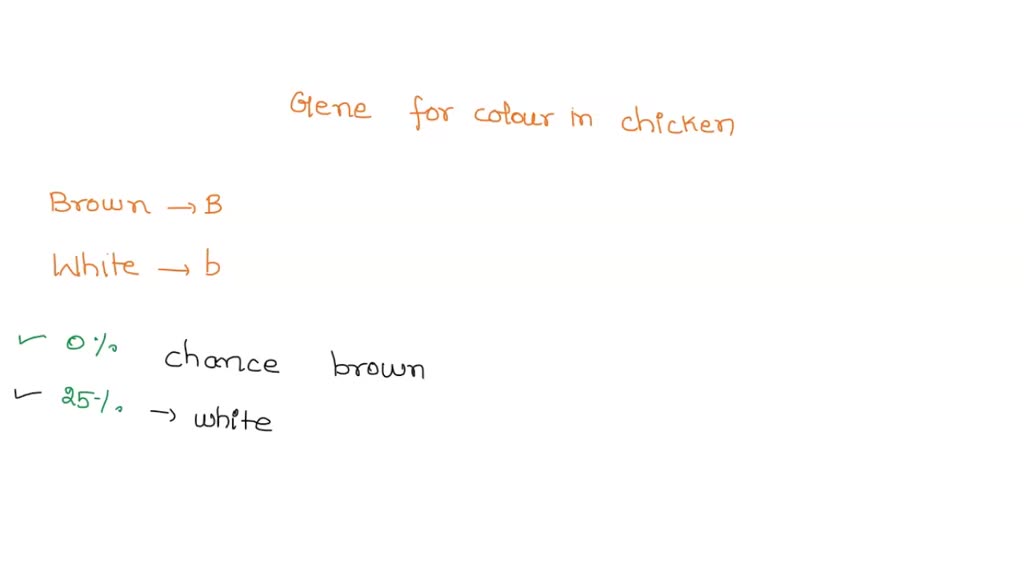 Gene for colour in chicken
Brown → B
White → b
✓ 0% chance brown
✓ 25% → white